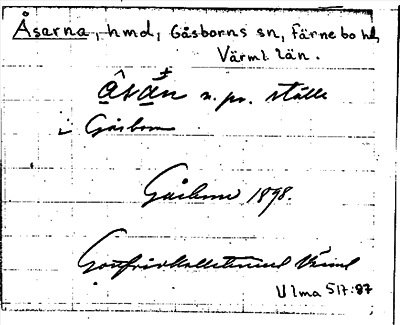 Åsarna, hmd, Gåsborns sn, Färnebo hd,
Värml. län.
åsa̱n n. pr. ställe
i Gåsborn
Gåsborn 1898.
Ulma 517:87